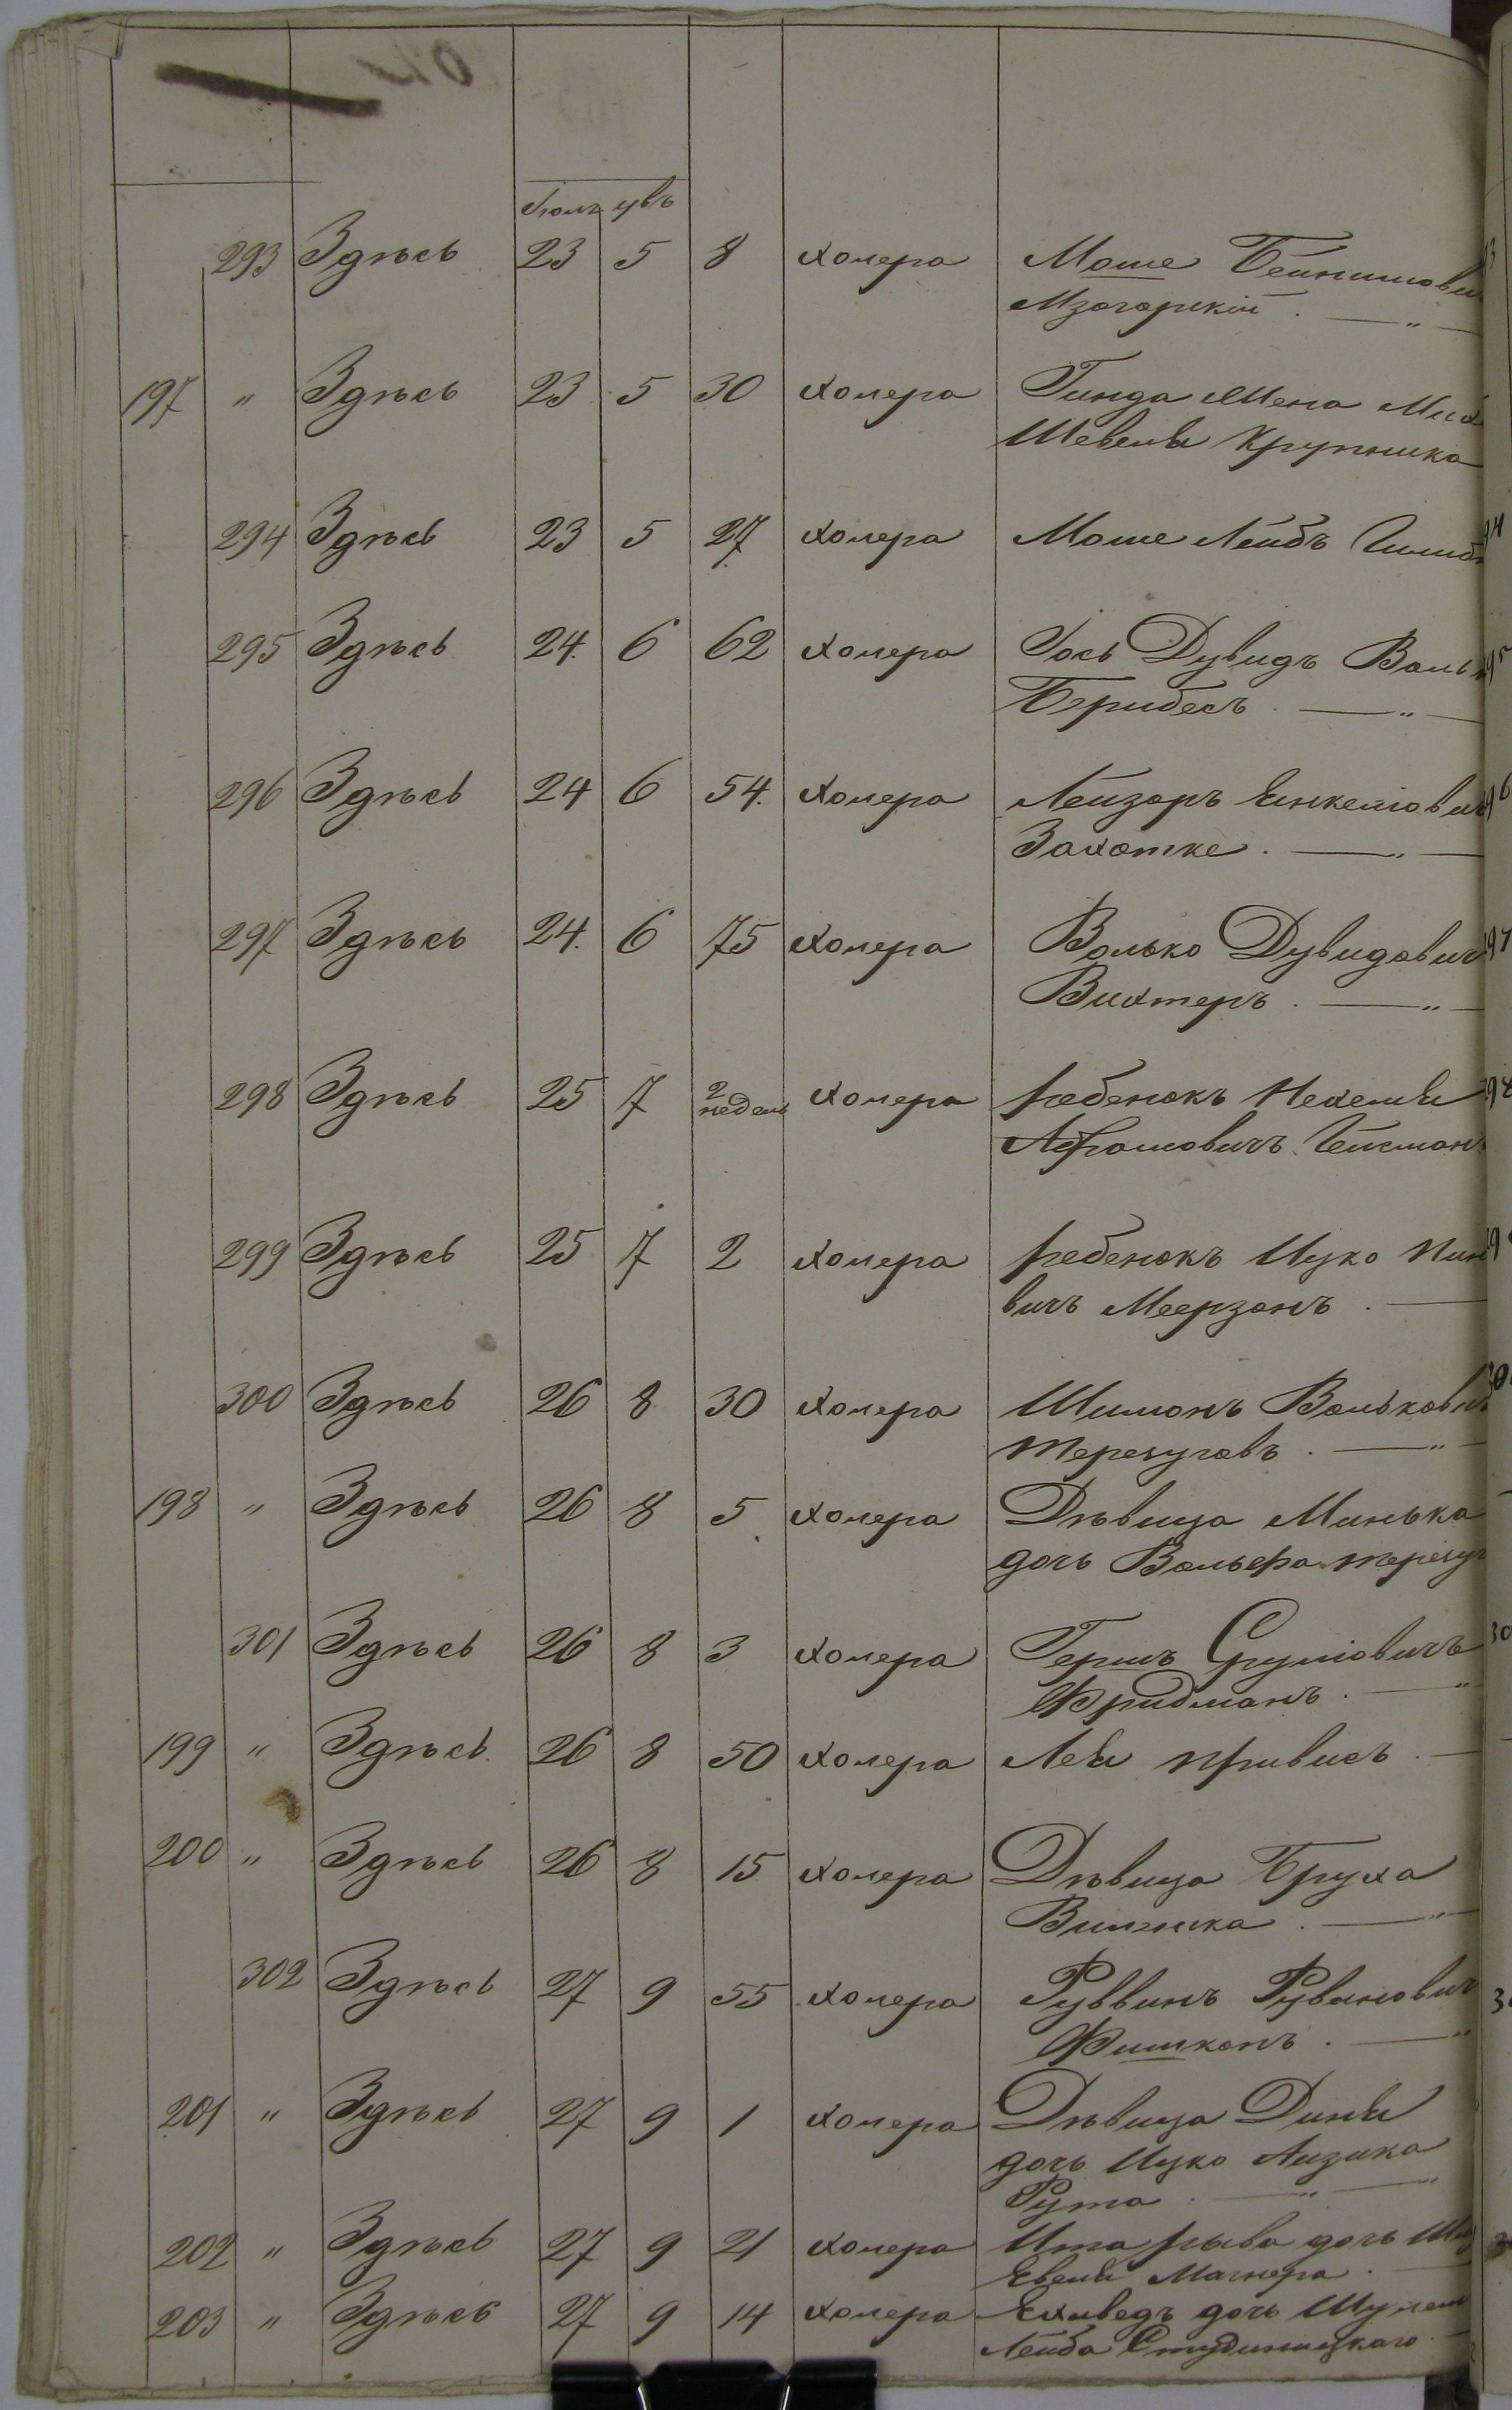 293 Здѣсь 23 5 8 холера Моше Бейнишови
Мзогорскій . — „ —
197 „ Здѣсь 23 5 30 холера Гинда Мена
Шевеля Крупника
294 Здѣсь 23 5 27 холера Моше Лейбъ
295 Здѣсь 24. 6 62 холера Іось Дувидъ Воль
Бгрибесъ . — „ —
296 Здѣсь 24 6 54. холера Лейзоръ Янкелови
Захотке . — „ —
297 Здѣсь 24. 6 75 холера Волько Дувидович
Вихтеръ . — „ —
298 Здѣсь 25 7 2 недель холера ребенокъ Нехемия
Абрамовичъ
299 Здѣсь 25 7 2 холера ребенокъ Ицко Пин
вичъ Меерзонъ . —
300 Здѣсь 26 8 30 холера Шимонъ Вольков
. — „ —
198 „ Здѣсь 26 8 5 холера Дѣвица Минька
дочь Вольфа
301 Здѣсь 26 8 3 холера Гершъ Сруліовичъ
Фридманъ . — „
199 „ Здѣсь 26 8 50 холера Лея Кривисъ . —
200 „ Здѣсь 26 8 15 холера Дѣвица Бруха
. — „ —
302 Здѣсь 27 9 55 холера Руввинъ Рувинович
Фишконъ . — „
201 „ Здѣсь 27 9 1 холера Дѣвица Диня
дочь Ицко Аизика
Рута . — „ — „
202 „ Здѣсь 27 9 21 холера Ита рыва дочь
Магнера . —
203 „ Здѣсь 27 9 14 холера Ехиведъ дочь Шулем
Лейба Студиницкаго